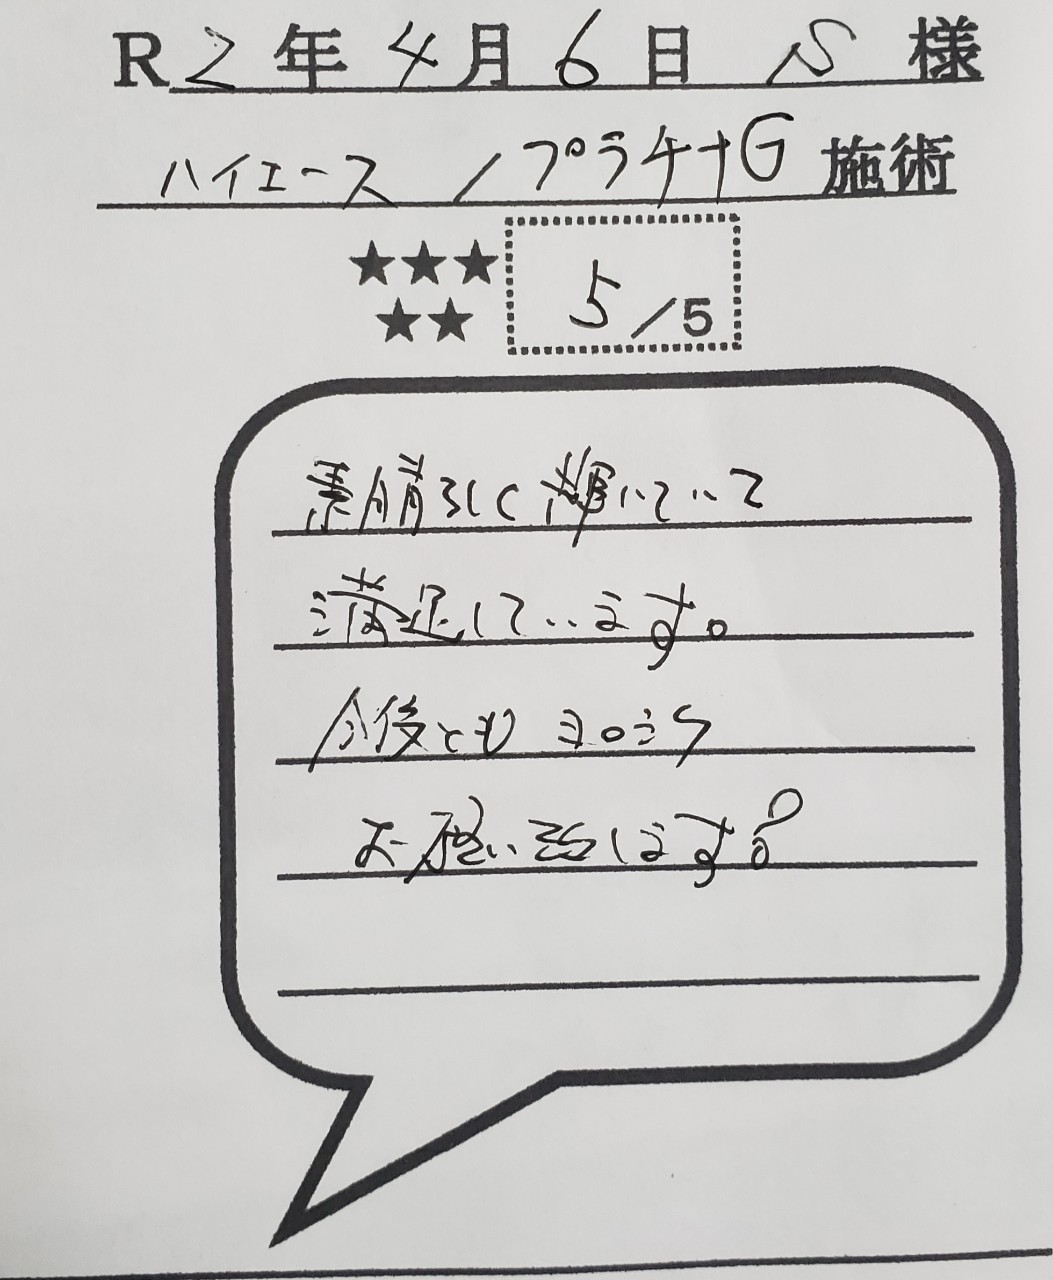 R2年4月6日 S様
ハイエース / プラチナG 施術
★★★
5/5
★★
素晴らしく輝いていて
満足しています。
今後ともよろしく
お願い致します。